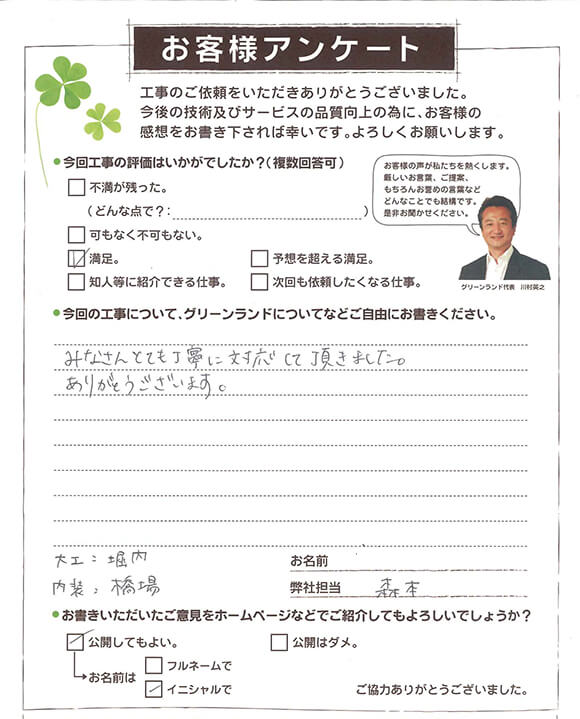 お客様アンケート
工事のご依頼をいただきありがとうございました。
今後の技術及びサービスの品質向上の為に、お客様の
感想をお書き下されば幸いです。よろしくお願いします。
今回工事の評価はいかがでしたか？（複数回答可）
不満が残った。
（どんな点で？：）
可もなく不可もない。
満足。
予想を超える満足。
知人等に紹介できる仕事。
次回も依頼したくなる仕事。
お客様の声が私たちを熱くします。
厳しいお言葉、ご提案、
もちろんお誉めの言葉など
どんなことでも結構です。
是非お聞かせください。
グリーンランド代表 川村英之
今回の工事について、グリーンランドについてなどご自由にお書きください。
みなさんとても丁寧に対応して頂きました。
ありがとうございます。
大工：堀内
内装：橋場
お名前
弊社担当 森本
お書きいただいたご意見をホームページなどでご紹介してもよろしいでしょうか？
公開してもよい。
公開はダメ。
お名前は
フルネームで
イニシャルで
ご協力ありがとうございました。